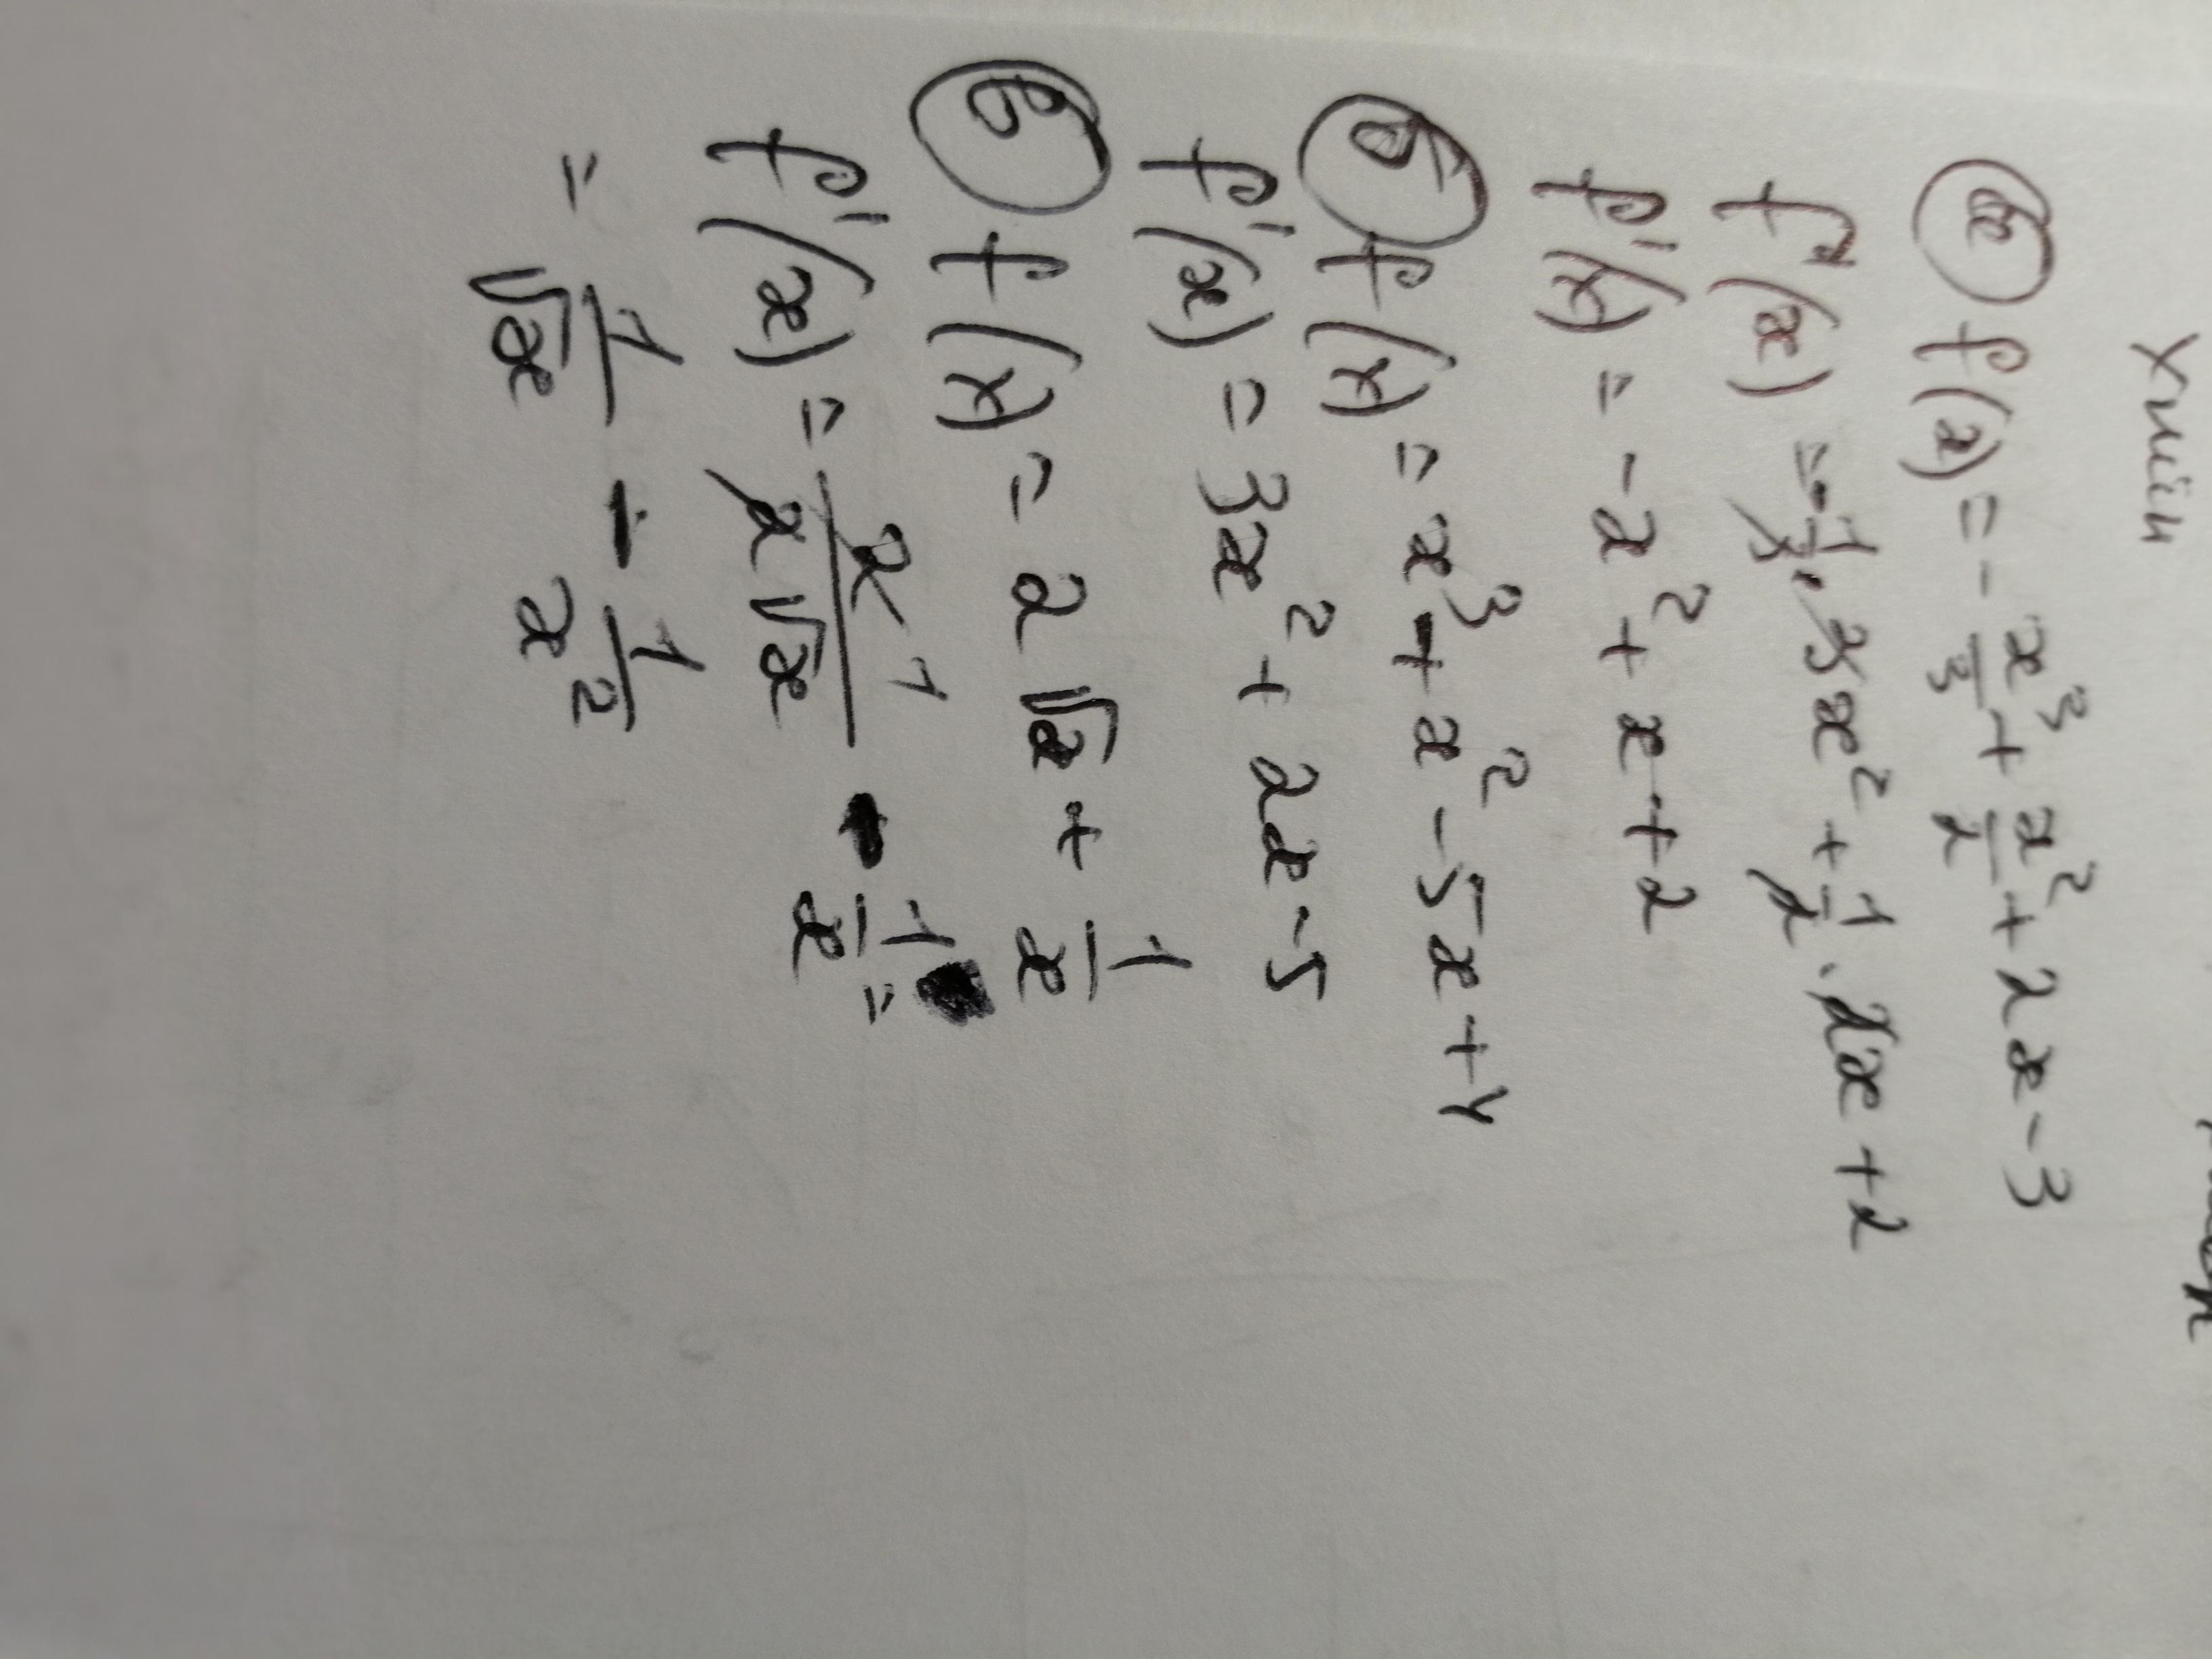 Хмін
а f(x) = -x³/3 + x²/2 + 2x - 3
f'(x) = -1/3 · 3x² + 1/2 · 2x + 2
f'(x) = -x² + x + 2
б f(x) = x³ + x² - 5x + 4
f'(x) = 3x² + 2x - 5
в f(x) = 2√x + 1/x
f'(x) = 2 1/2√x - 1/x =
= 1/√x - 1/x²